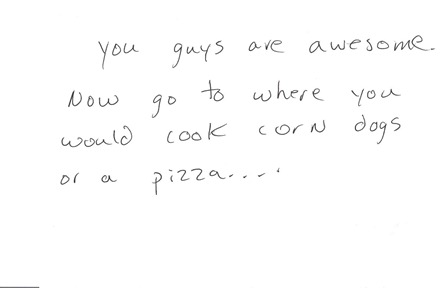 you guys are awesome.
Now go to where you
would cook corn dogs
or a pizza.....